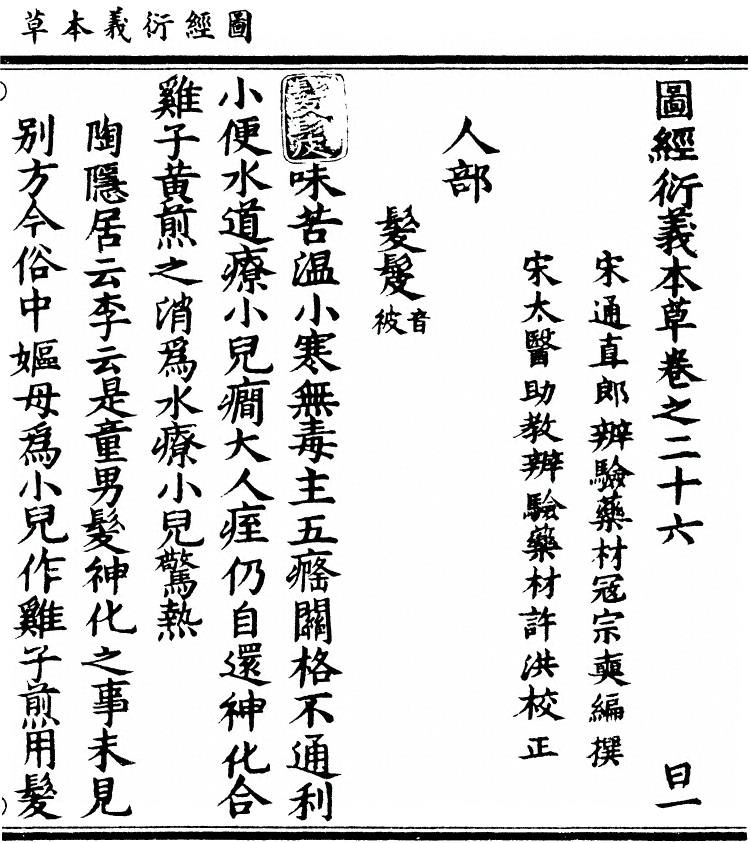 圖經衍義本草
圖經衍義本草卷之二十六
曰一
宋通直郎辨驗藥材冦宗奭編撰
宋太醫助教辨驗藥材許洪校正
人部
髮髲音被
髮髲味苦溫小寒無毒主五癃關格不通利
小便水道療小兒癎大人痓仍自還神化合
雞子黄煎之消爲水療小兒驚熱
陶隱居云李云是童男髮神化之事未見
别方今俗中嫗母爲小兒作雞子煎用髮